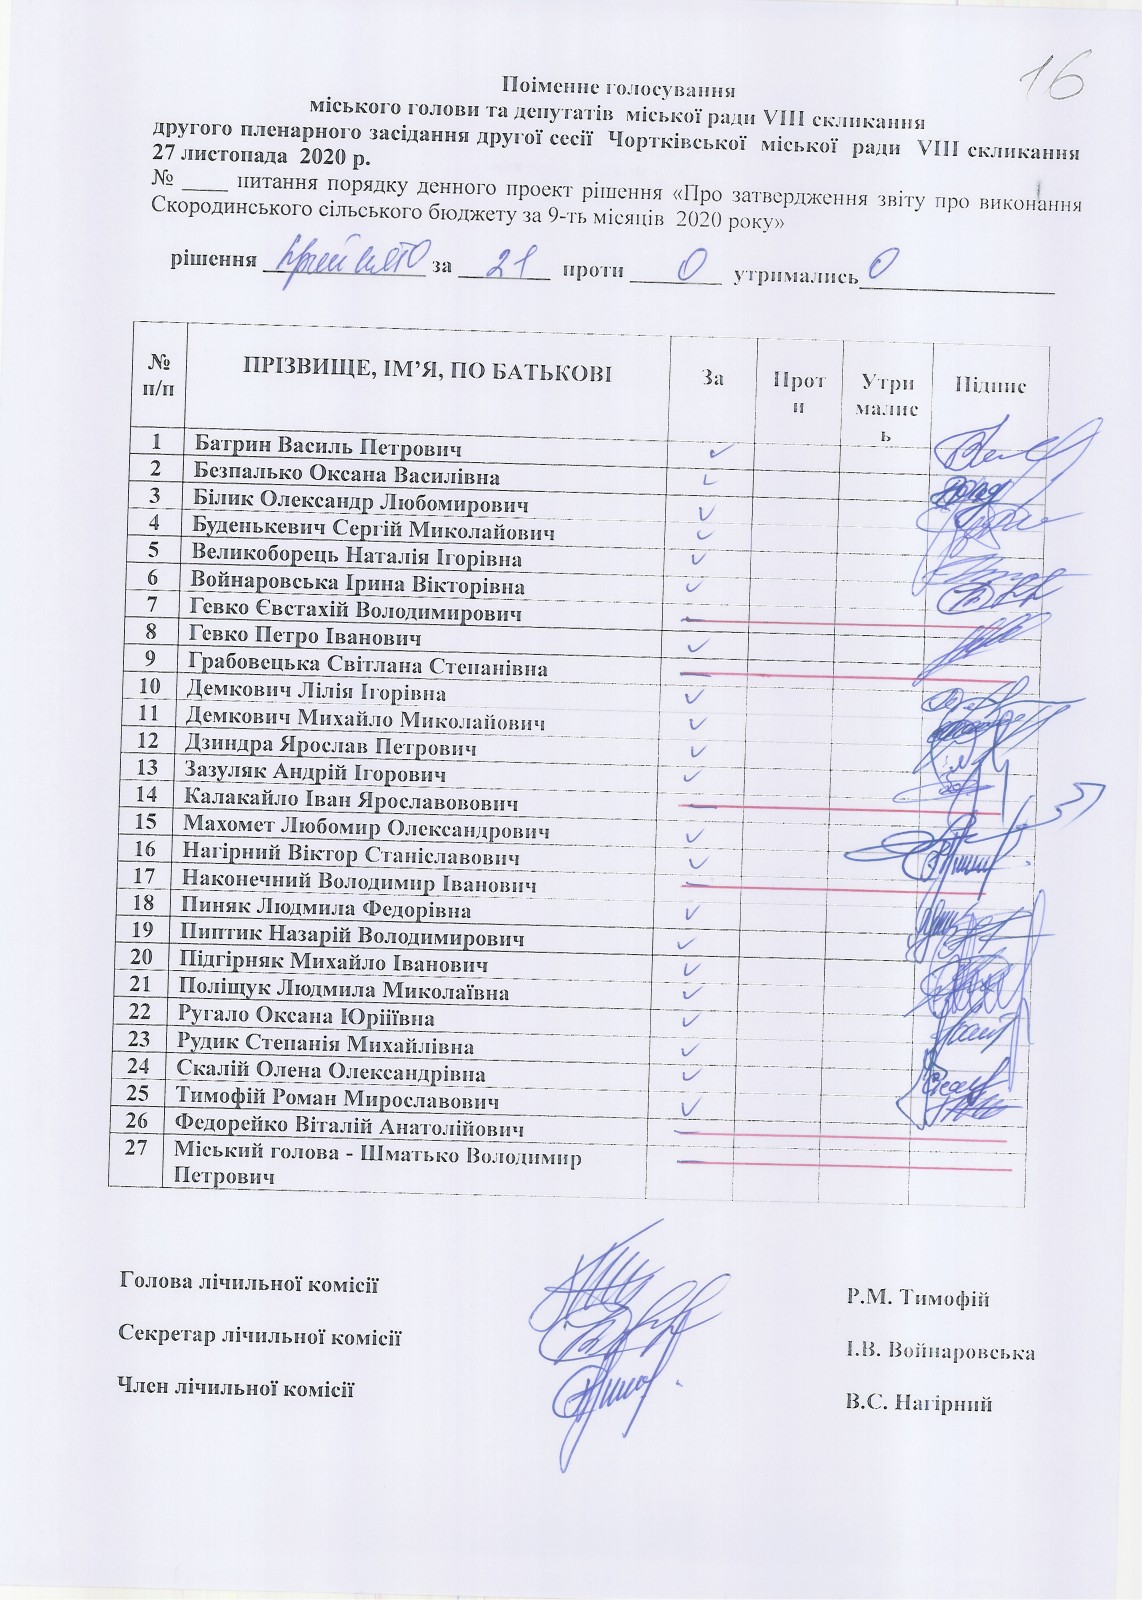 16
Поіменне голосування
міського голови та депутатів міської ради VIII скликання
другого пленарного засідання другої сесії Чортківської міської ради VIII скликання
27 листопада 2020 р.
№ ____ питання порядку денного проект рішення «Про затвердження звіту про виконання
Скородинського сільського бюджету за 9-ть місяців 2020 року»
рішення прийнято за 21 проти 0 утримались 0
№ п/п ПРІЗВИЩЕ, ІМ’Я, ПО БАТЬКОВІ За Проти Утримались Підпис
1 Батрин Василь Петрович ✓
2 Безпалько Оксана Василівна ✓
3 Білик Олександр Любомирович ✓
4 Буденькевич Сергій Миколайович ✓
5 Великоборець Наталія Ігорівна ✓
6 Войнаровська Ірина Вікторівна ✓
7 Гевко Євстахій Володимирович
8 Гевко Петро Іванович ✓
9 Грабовецька Світлана Степанівна
10 Демкович Лілія Ігорівна ✓
11 Демкович Михайло Миколайович ✓
12 Дзиндра Ярослав Петрович ✓
13 Зазуляк Андрій Ігорович ✓
14 Калакайло Іван Ярославовович
15 Махомет Любомир Олександрович ✓
16 Нагірний Віктор Станіславович ✓
17 Наконечний Володимир Іванович
18 Пиняк Людмила Федорівна ✓
19 Пиптик Назарій Володимирович ✓
20 Підгірняк Михайло Іванович ✓
21 Поліщук Людмила Миколаївна ✓
22 Ругало Оксана Юріїівна ✓
23 Рудик Степанія Михайлівна ✓
24 Скалій Олена Олександрівна ✓
25 Тимофій Роман Мирославович ✓
26 Федорейко Віталій Анатолійович
27 Міський голова - Шматько Володимир
Петрович
Голова лічильної комісії Р.М. Тимофій
Секретар лічильної комісії І.В. Войнаровська
Член лічильної комісії В.С. Нагірний